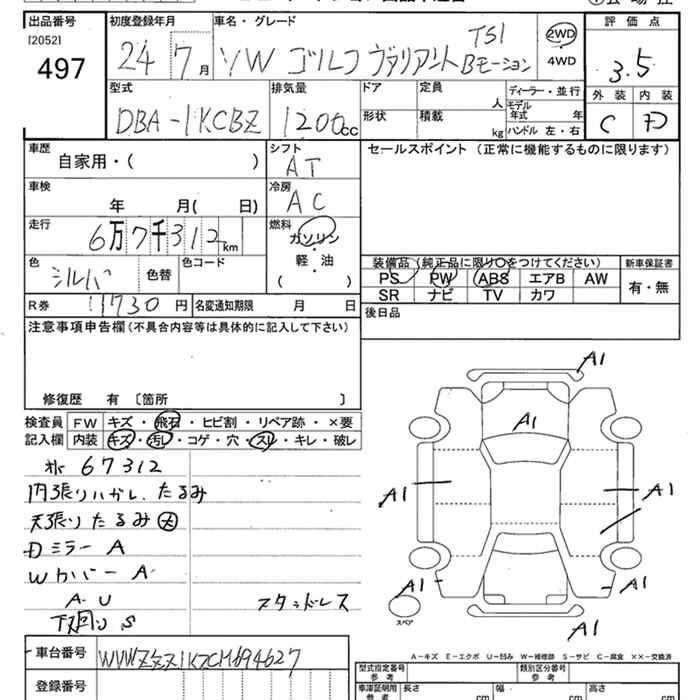 出品番号 初度登録年月 車名・グレード 評価点
[2052] 497
24 7月 VW ゴルフ ヴァリアント TSI Bモーション 2WD 4WD 3.5
型式 排気量 ドア 定員 人 ディーラー・並行
モデル年式 年
外装 内装
DBA-1KCBZ 1200cc 形状 積載 kg ハンドル 左・右 C D
車歴 シフト セールスポイント (正常に機能するものに限ります)
自家用・( ) AT
車検 冷房
年 月( 日) AC
走行 燃料
6万7千312km ガソリン
軽・油
( )
色 色替 色コード
シルバ
装備品 (純正品に限り○をつけてください) 新車保証書
PS PW ABS エアB AW 有・無
SR ナビ TV カワ
R券 11730円 名変通知期限 月 日 後日品
注意事項申告欄 (不具合内容等は具体的に記入して下さい)
修復歴 有 〔箇所 〕
検査員 FW キズ・飛石・ヒビ割・リペア跡・×要
記入欄 内装 キズ・汚レ・コゲ・穴・スレ・キレ・破レ
67312
内張りハガレ、たるみ
天張りたるみ 大
Dミラー A
Wカバー A
A U スタッドレス
下廻り S
A1
A1
A1
A1
A1 A1
A1
スペア
A-キズ E-エクボ U-凹み W-補修跡 S-サビ C-腐食 ××-交換済
車台番号 WVWZZZ1KZCM694627
登録番号
型式指定番号 参考 類別区分番号 参考
車庫証明用 参考 長さ cm 幅 cm 高さ cm